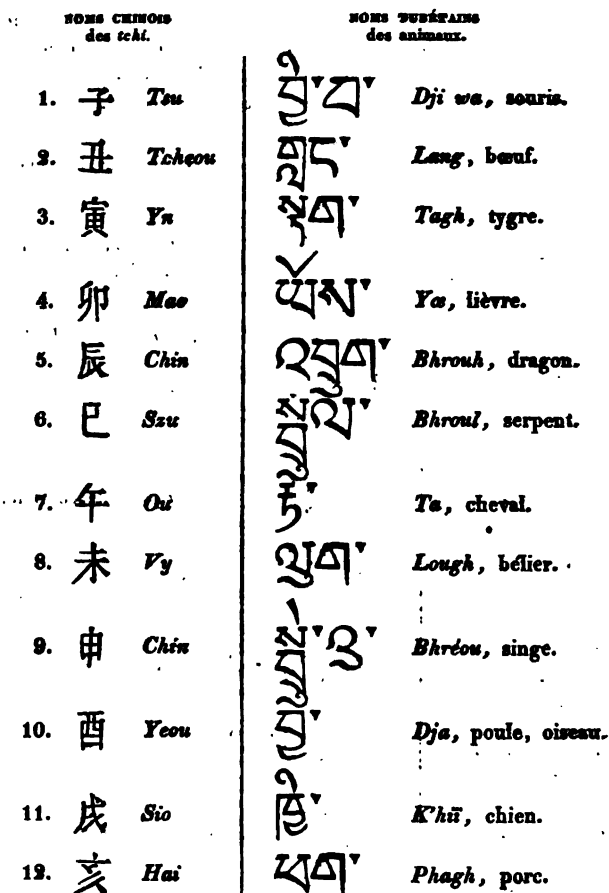 NOMS CHINOIS
des tchi.
NOMS TUBÉTAINS
des animaux.
1. 子 Tsu བྱི་བ་ Dji wa, souris.
2. 丑 Tcheou གླང་ Lang, bœuf.
3. 寅 Yn སྟག་ Tagh, tygre.
4. 卯 Mao ཡོས་ Yœ, lièvre.
5. 辰 Chin འབྲུག་ Bhrouh, dragon.
6. 巳 Szu སྦྲུལ་ Bhroul, serpent.
7. 午 Ou རྟ་ Ta, cheval.
8. 未 Vy ལུག་ Lough, bélier.
9. 申 Chin སྤྲེ་འུ་ Bhréou, singe.
10. 酉 Yeou བྱ་ Dja, poule, oiseau.
11. 戌 Sio ཁྱི་ K'hiï, chien.
12. 亥 Hai ཕག་ Phagh, porc.